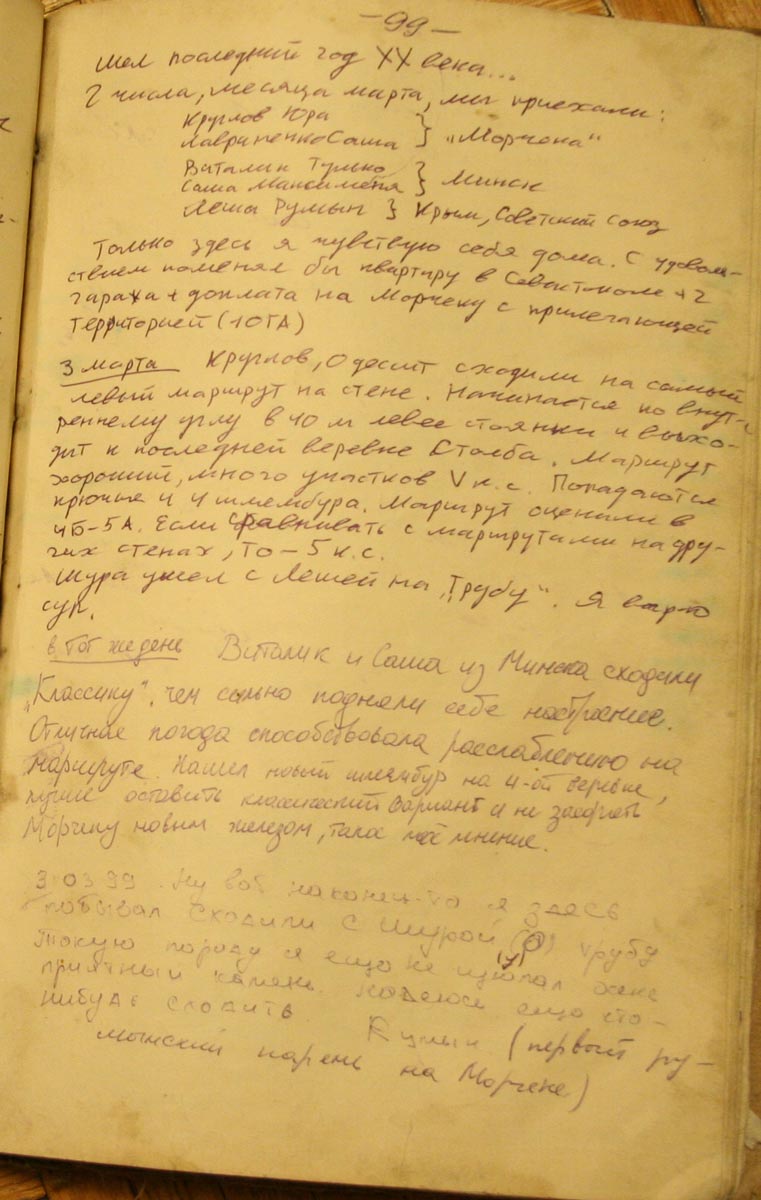 -99-
Шел последний год XX века...
2 числа, месяца марта, мы приехали:
Круглов Юра
Лавриненко Саша } „Морчека“
Виталик Тумко
Саша Максименя } Минск
Леша Румын } Крым, Советский Союз
Только здесь я чувствую себя дома. С удоволь-
ствием поменял бы квартиру в Севастополе + 2
гаража + доплата на Морчеку с прилегающей
территорией (10 ГА)
3 марта Круглов, Одессит сходили на самый
левый маршрут на стене. Начинается по внут-
реннему углу в 40 м левее стоянки и выхо-
дит к последней веревке Столба. Маршрут
хороший, много участков V к.с. Попадаются
крючья и 4 шлямбура. Маршрут оценили в
4Б-5А. Если сравнивать с маршрутами на дру-
гих стенах, то - 5 к.с.
Шура ушел с Лешей на „Трубу“. Я варю
суп.
в тот же день Виталик и Саша из Минска сходили
„Классику“, чем сильно подняли себе настроение.
Отличная погода способствовала расслаблению на
маршруте. Нашел новый шлямбур на 4-ой веревке,
лучше оставить классический вариант и не засорять
Морчеку новым железом, такое моё мнение.
3 03 99. Ну вот наконец-то я здесь
побывал сходили с Шурой (О) трубу
Такую породу я ещо не щюпал очень
приятный камень. Надеюс ещо что-
нибудь сходить Румын (первый ру-
мынский парень на Морчеке)